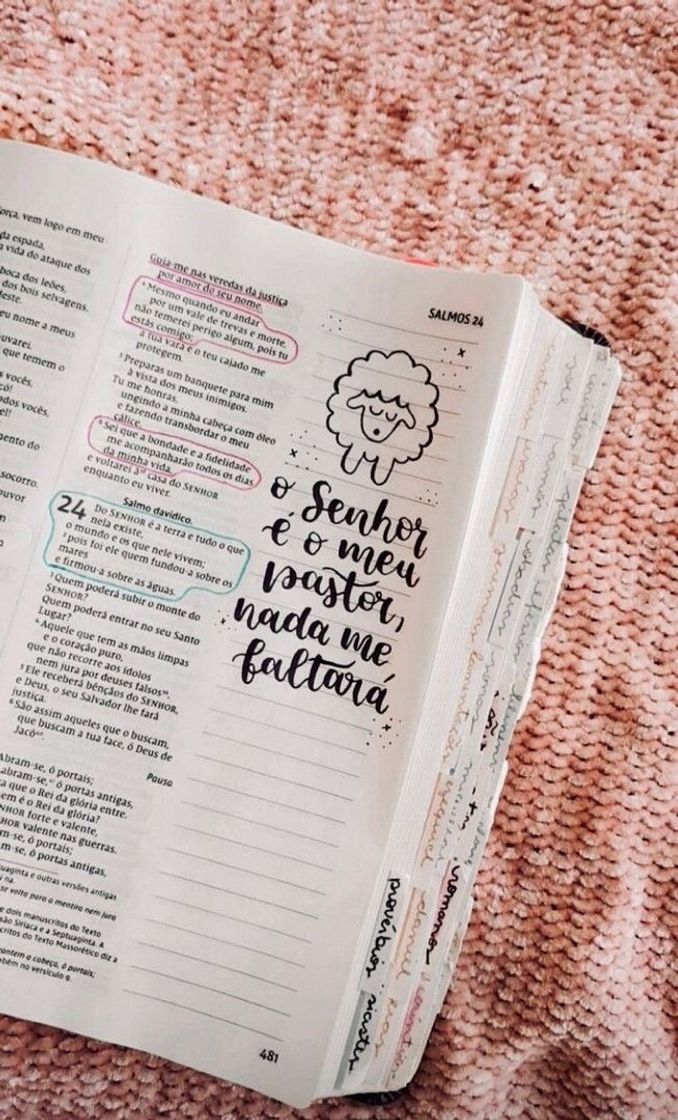 orça, vem logo em meu
da espada,
a vida do ataque dos
boca dos leões,
dos bois selvagens.
este.
eu nome a meus
uvarei.
que temem o
s vocês,
có!
odos vocês,
el!
mento do
socorro.
ouvor
m
o
s
Guia-me nas veredas da justiça
por amor do seu nome.
⁴ Mesmo quando eu andar
por um vale de trevas e morte,
não temerei perigo algum, pois tu
estás comigo;
a tua vara e o teu cajado me
protegem.
⁵ Preparas um banquete para mim
à vista dos meus inimigos.
Tu me honras,
ungindo a minha cabeça com óleo
e fazendo transbordar o meu
cálice.
⁶ Sei que a bondade e a fidelidade
me acompanharão todos os dias
da minha vida,
e voltarei à casa do SENHOR
enquanto eu viver.
24
Salmo davídico.
DO SENHOR é a terra e tudo o que
nela existe,
o mundo e os que nele vivem;
² pois foi ele quem fundou-a sobre os
mares
e firmou-a sobre as águas.
³ Quem poderá subir o monte do
SENHOR?
Quem poderá entrar no seu Santo
Lugar?
⁴ Aquele que tem as mãos limpas
e o coração puro,
que não recorre aos ídolos
nem jura por deuses falsos
⁵ Ele receberá bênçãos do SENHOR,
e Deus, o seu Salvador lhe fará
justiça.
⁶ São assim aqueles que o buscam,
que buscam a tua face, ó Deus de
Jacó
Pausa
Abram-se, ó portais;
abram-se, ó portas antigas,
a que o Rei da glória entre.
em é o Rei da glória?
NHOR forte e valente,
HOR valente nas guerras.
m-se, ó portais;
m-se, ó portas antigas,
uaginta e outras versões antigas
/ na.
se volta para o mentira nem jura
e dois manuscritos do Texto
são Siríaca e a Septuaginta. A
critos do Texto Massorético diz a
ontem a cabeça, ó portais;
mbém no versículo 9.
SALMOS 24
o Senhor
é o meu
pastor,
nada me
faltará
481
provérbios
daniel
romanos
ezequiel